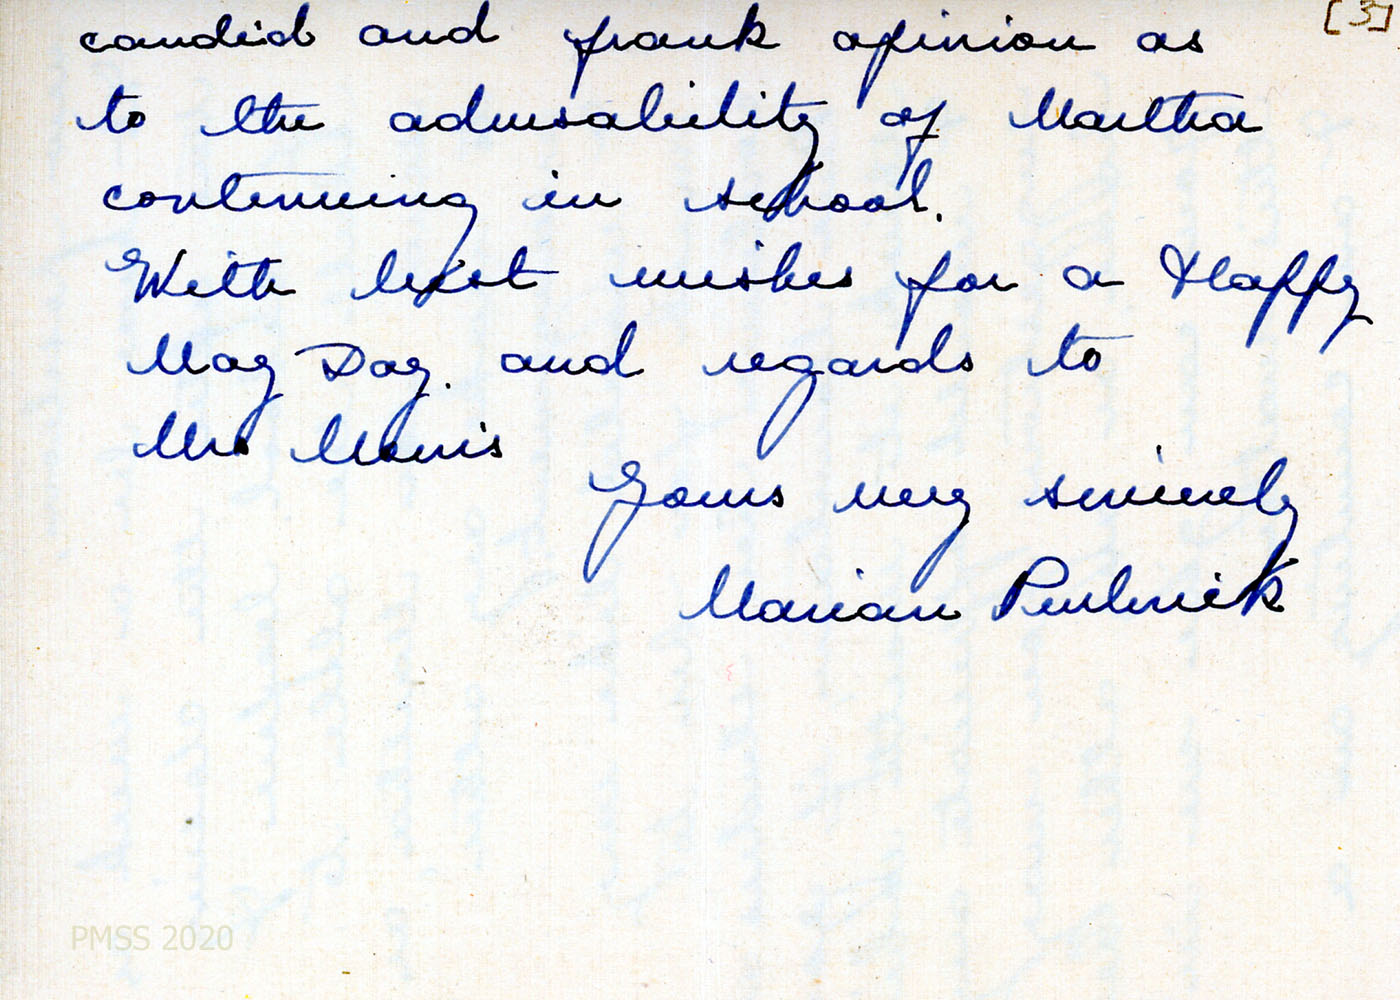 [3]
candid and frank opinion as
to the advisability of Martha
continuing in school.
With best wishes for a Happy
May Day. and regards to
Mrs Morris
Yours very sincerely
Marian
PMSS 2020